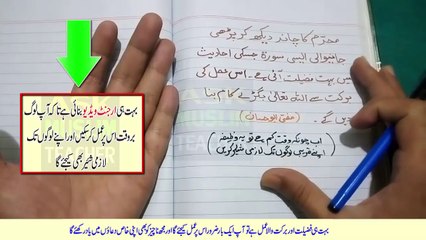 محرم کا چاند دیکھ کر پڑھی
جانیوالی ایسی سورۃ جسکی احادیث
میں بہت فضیلت آئی ہے۔ اس عمل کی
برکت سے اللہ تعالیٰ بگڑے کام بنا
دیں گے۔
اب چونکہ وقت کم ہے تو یہ وظیفہ
اپنے قریبی لوگوں تک لازمی شیئر کریں
بہت ہی ارجنٹ ویڈیو بنائی ہے تاکہ آپ لوگ
بروقت اس پر عمل کر سکیں اور اپنے لوگوں تک
لازمی شیئر بھی کیجئے گا
TEACHER
بہت ہی فضیلت اور برکت والا عمل ہے تو آپ ایک بار ضرور اس پر عمل کیجئے گا اور مجھ ناچیز کو بھی اپنی خاص دعاؤں میں یاد رکھئے گا